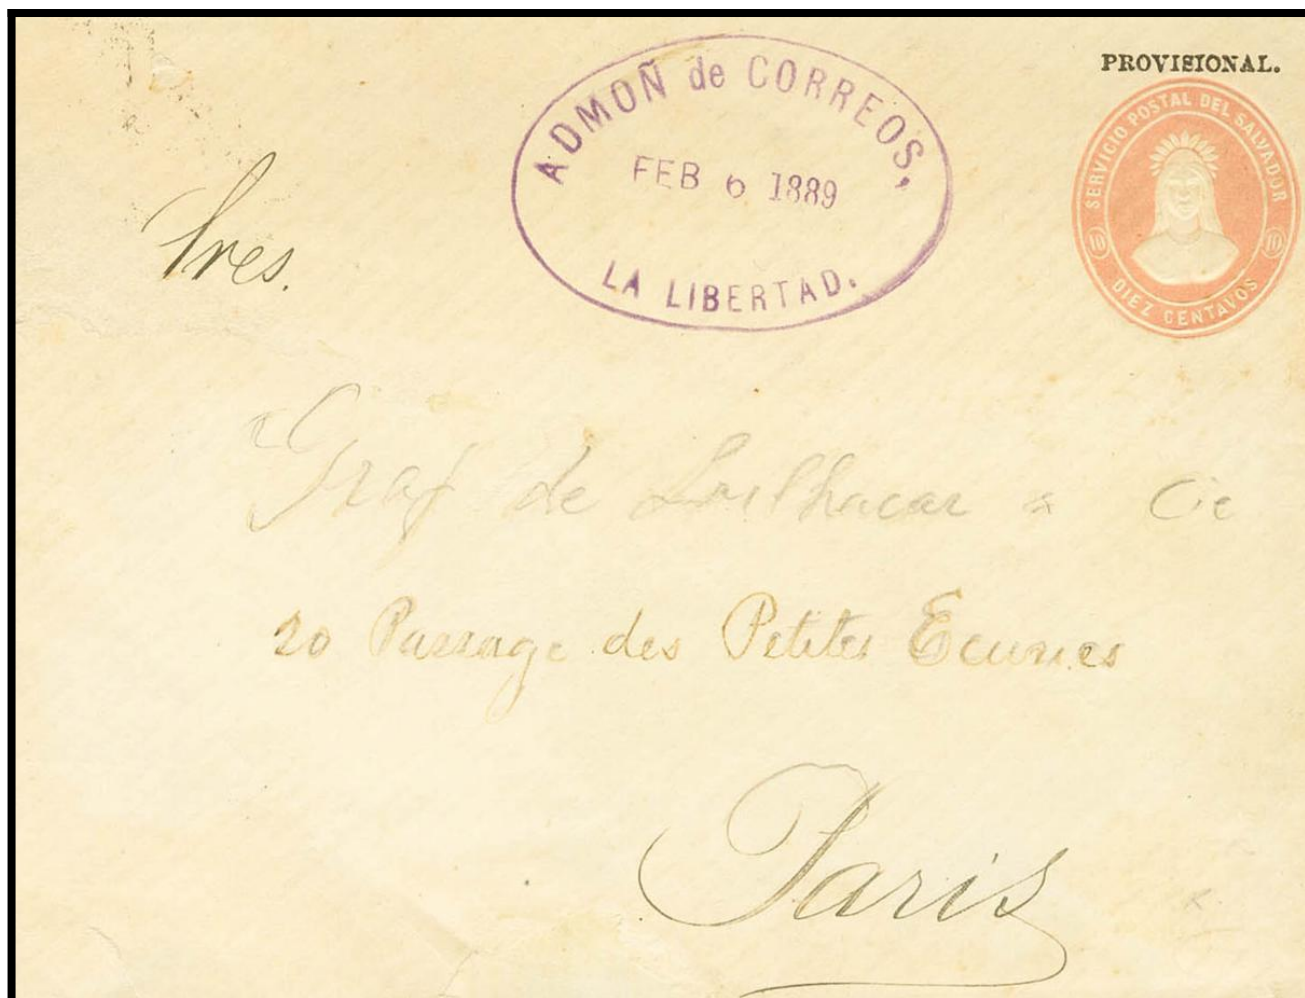 PROVISIONAL.
ADMOÑ de CORREOS,
FEB 6 1889
LA LIBERTAD.
SERVICIO POSTAL DEL SALVADOR
10 10
DIEZ CENTAVOS
Sres.
Graf de & Cie
20 Passage des Petites Ecuries
Paris